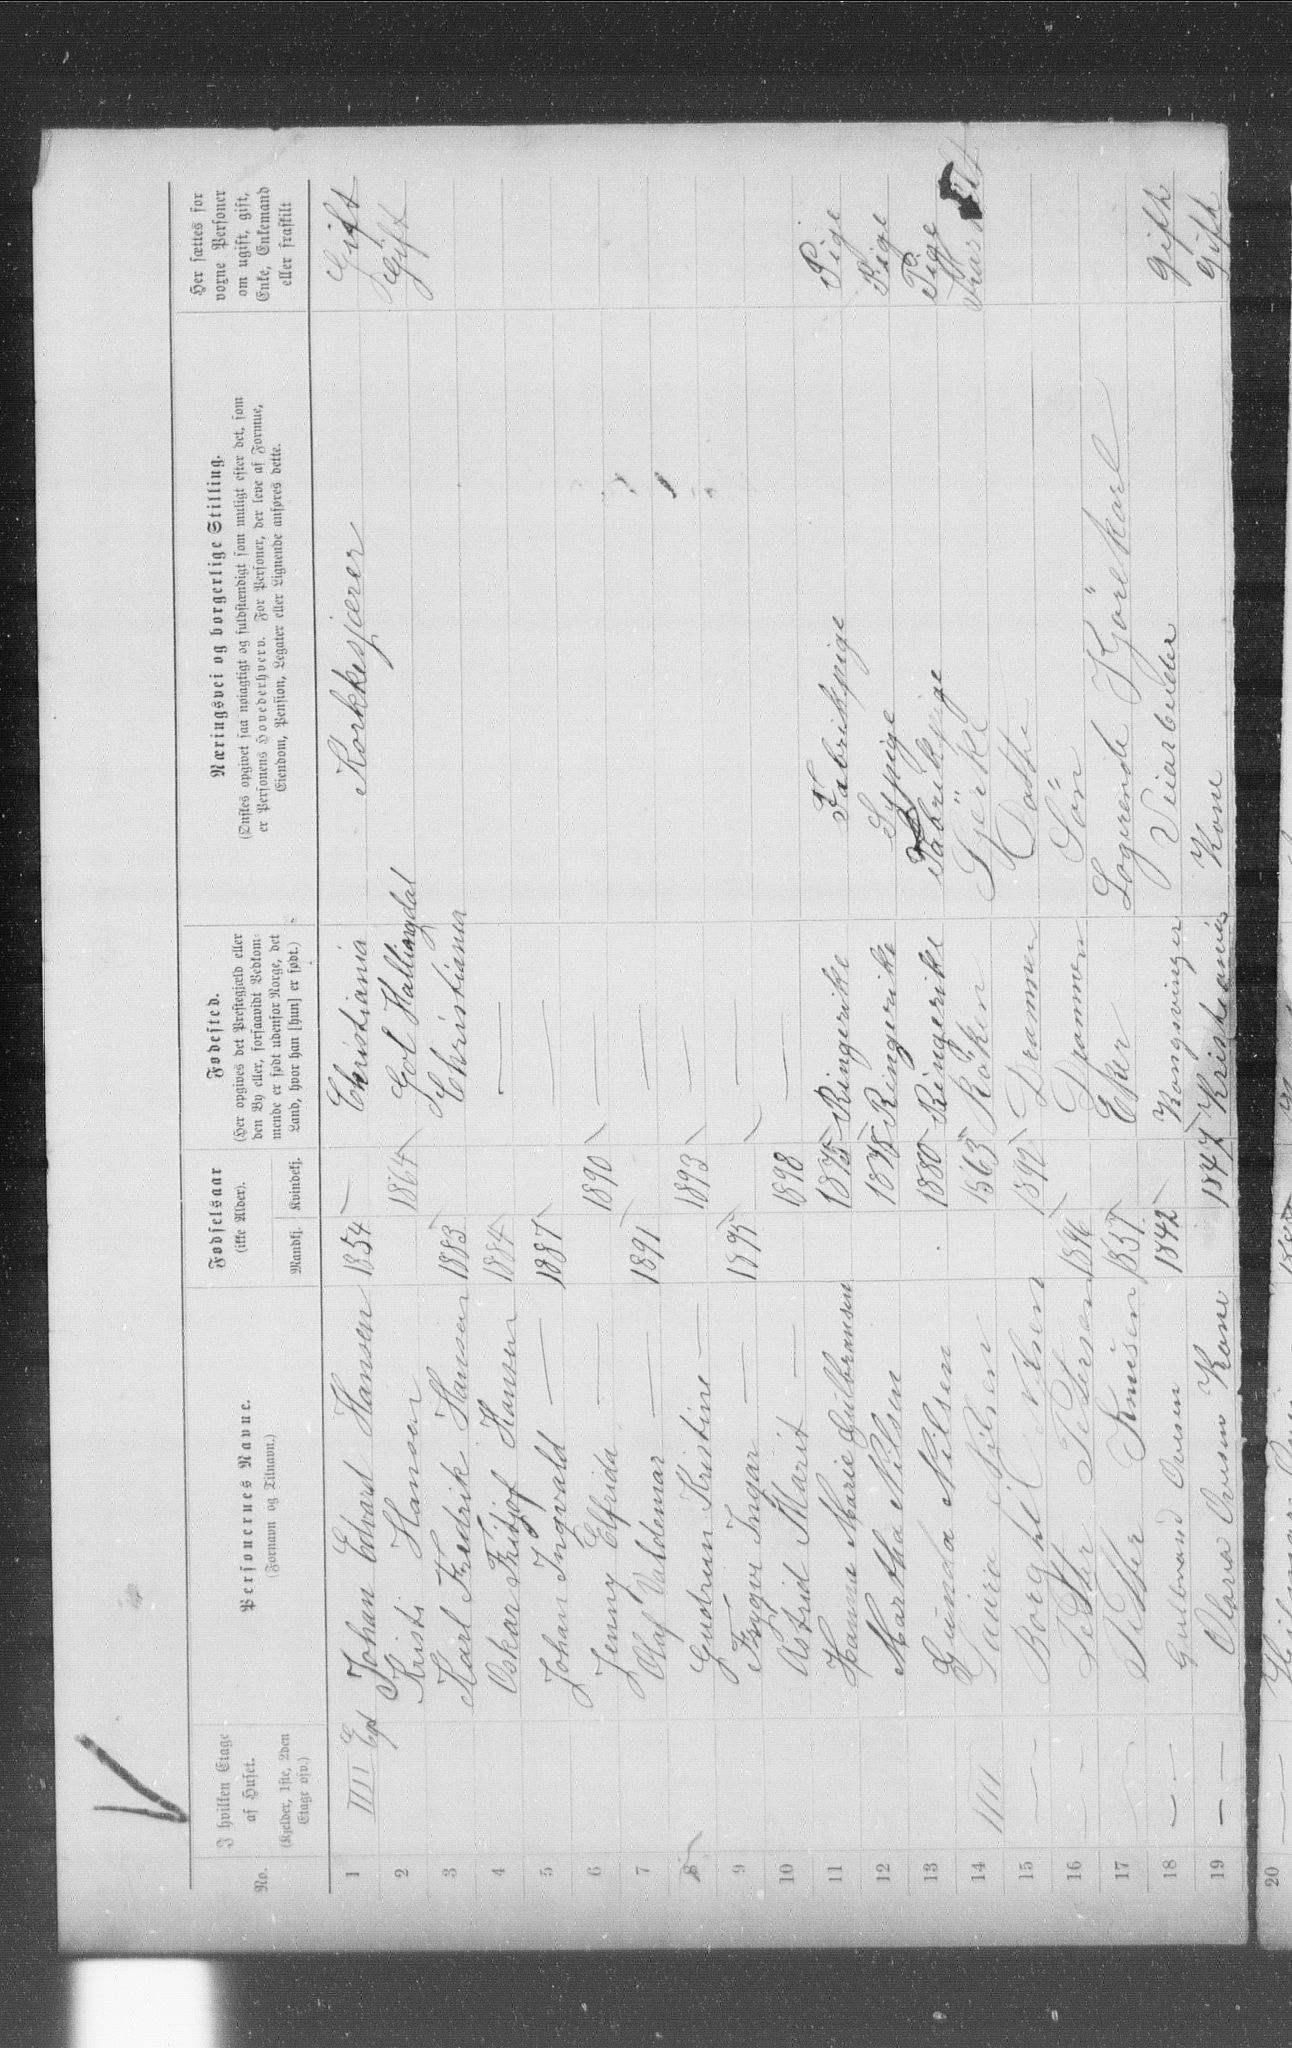 No.
I hvilken Etage
af Huset.
(Kjelder, 1ste, 2den
Etage osv.)
Personernes Navne.
(Fornavn og Tilnavn.)
Fødselsaar
(ikke Alder).
Mandkj. Kvindekj.
Fødested.
(Her opgives det Prestegjæld eller
den By eller, forsaavidt Vedkom-
mende er født udenfor Norge, det
Land, hvor han [hun] er født.)
Næringsvei og borgerlige Stilling.
(Ønskes opgivet saa nøiagtigt og fuldstændigt som muligt efter det, som
er Personens Hovederhverv. For Personer, der leve af Formue,
Eiendom, Pension, Legater eller Lignende anføres dette.
Her sættes for
voxne Personer
om ugift, gift,
Enke, Enkemand
eller fraskilt
1 IIII Etg Johan Edvard Hansen 1854 — Christiania Korkkesjærer Gift
2 Kristi Hansen 1864 Gol Hallingdal Gift
3 Karl Fredrik Hansen 1883 Christiania
4 Oskar Fritjof Hansen 1884 —
5 Johan Ingvald — 1887 —
6 Jenny Elfrida — 1890 —
7 Olaf Valdemar — 1891 —
8 Gudrun Kristine — 1893 —
9 Trygve Ingvar — 1895 —
10 Astrid Marit — 1898 —
11 Hanna Marie Gulbransen 1875 Ringerike Fabrikpige Pige
12 Martha Nilsen 1878 Ringerike Sypige Pige
13 Gunda Nilsen 1880 Ringerike Fabrikpige Pige
14 IIII Nilsen 1863 Røken
15 — Borghil Nilsen 1892 Drammen
16 - Petter Petersen 1896 Drammen Sön
17 — Petter Knusen 1857 Eker Logerende Kjörekarl
18 — — Gulbrand Ovesen 1842 — Kongsvinger Veiarbeider gift
19 — — Olava Ovesen Kone 1847 Kristiania Kone gift
20 — —